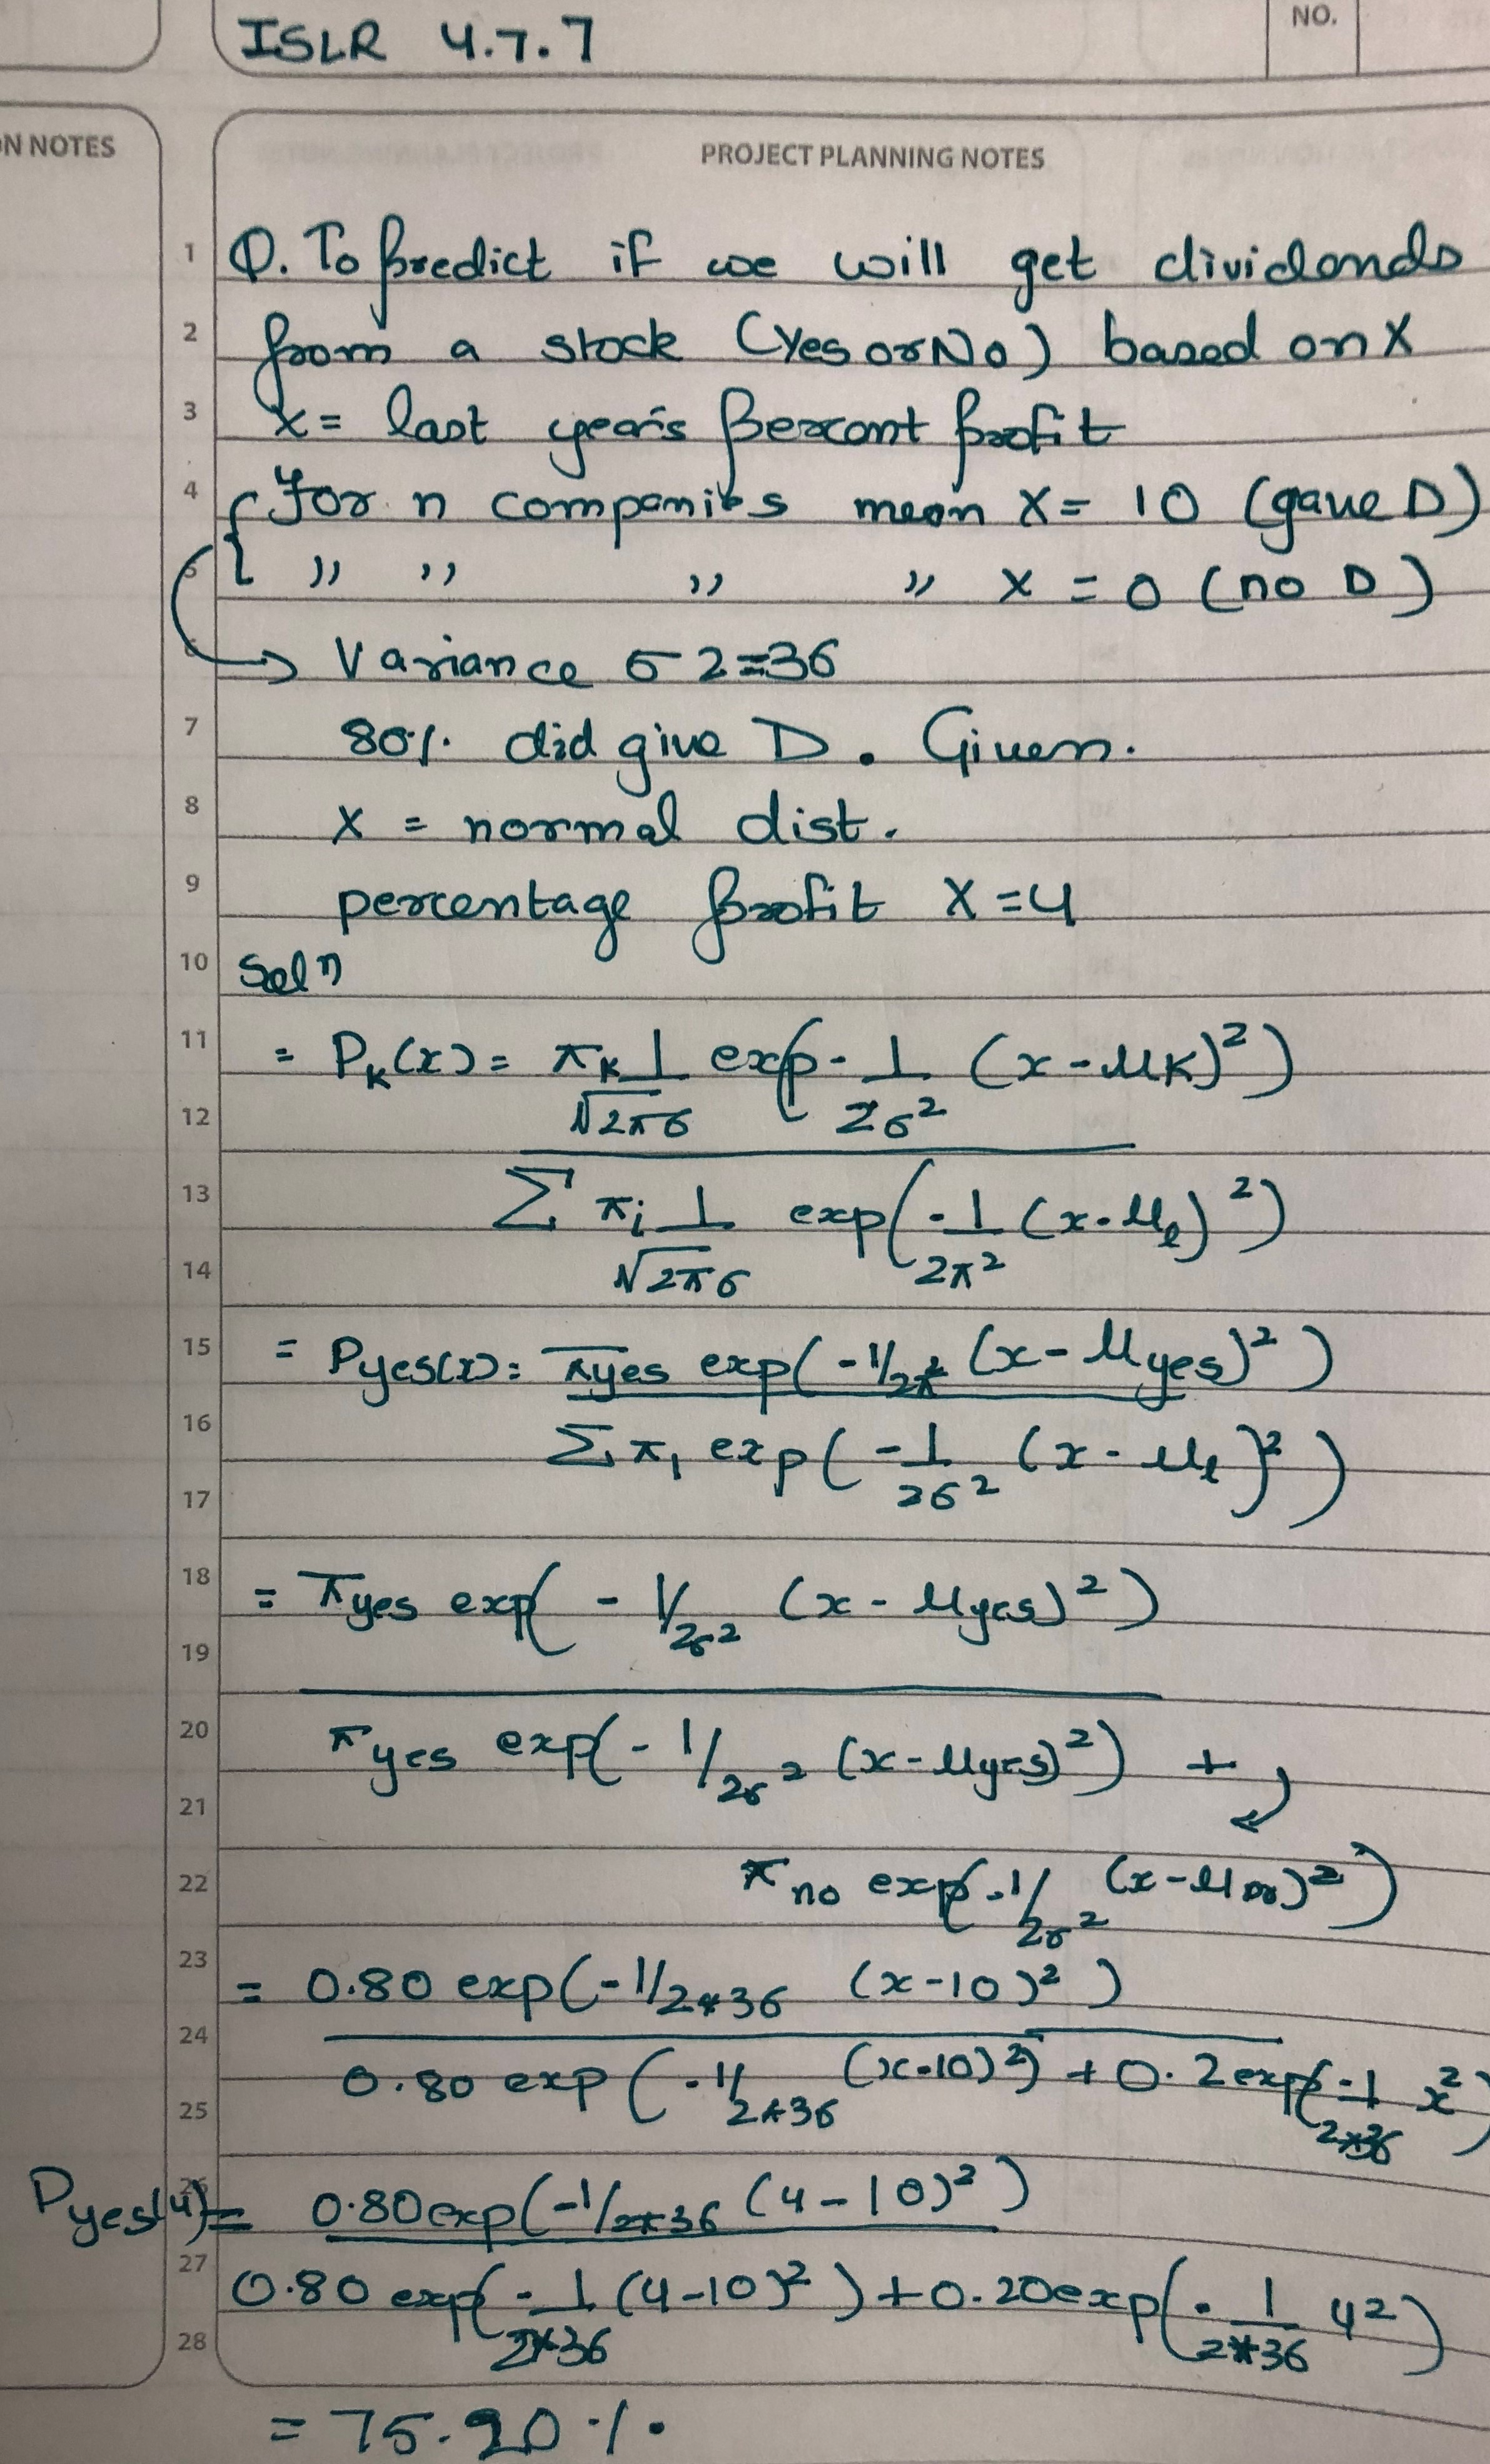 ISLR 4.7.7
NO.
N NOTES
PROJECT PLANNING NOTES
1 Q. To predict if we will get dividends
2 from a stock (Yes or No) based on X
3 X = last year's percent profit
4 For n companies mean X = 10 (gave D)
5 ,, ,, ,, ,, X = 0 (no D)
6 → Variance σ2=36
7 80%. did give D. Given.
8 X = normal dist.
9 percentage profit X = 4
10 Solⁿ
11 = Pₖ(x) = πₖ 1 exp(- 1 (x - μₖ)²)
12 √2πσ 2σ²
13 Σ πᵢ 1 exp(- 1 (x - μₗ)²)
14 √2πσ 2π²
15 = Pyes(x) = πyes exp(-1/2π² (x - μyes)²)
16 Σ π₁ exp(- 1 (x - μₗ)²)
17 2σ²
18 = πyes exp(- 1/2σ² (x - μyes)²)
19
20 πyes exp(- 1/2σ² (x - μyes)²) +
21
22 πno exp(-1/2σ² (x - μno)²)
23 = 0.80 exp(-1/2*36 (x-10)²)
24 0.80 exp(-1/2*36 (x-10)²) + 0.2 exp(-1 x²)
25 2*36
26 Pyes(4) = 0.80 exp(-1/2*36 (4-10)²)
27 0.80 exp(- 1 (4-10)²) + 0.20 exp(- 1 4²)
28 2*36 2*36
= 75.20 %.